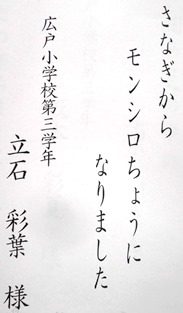 さなぎから
モンシロちょうに
なりました
広戸小学校第三学年
立石 彩葉 様